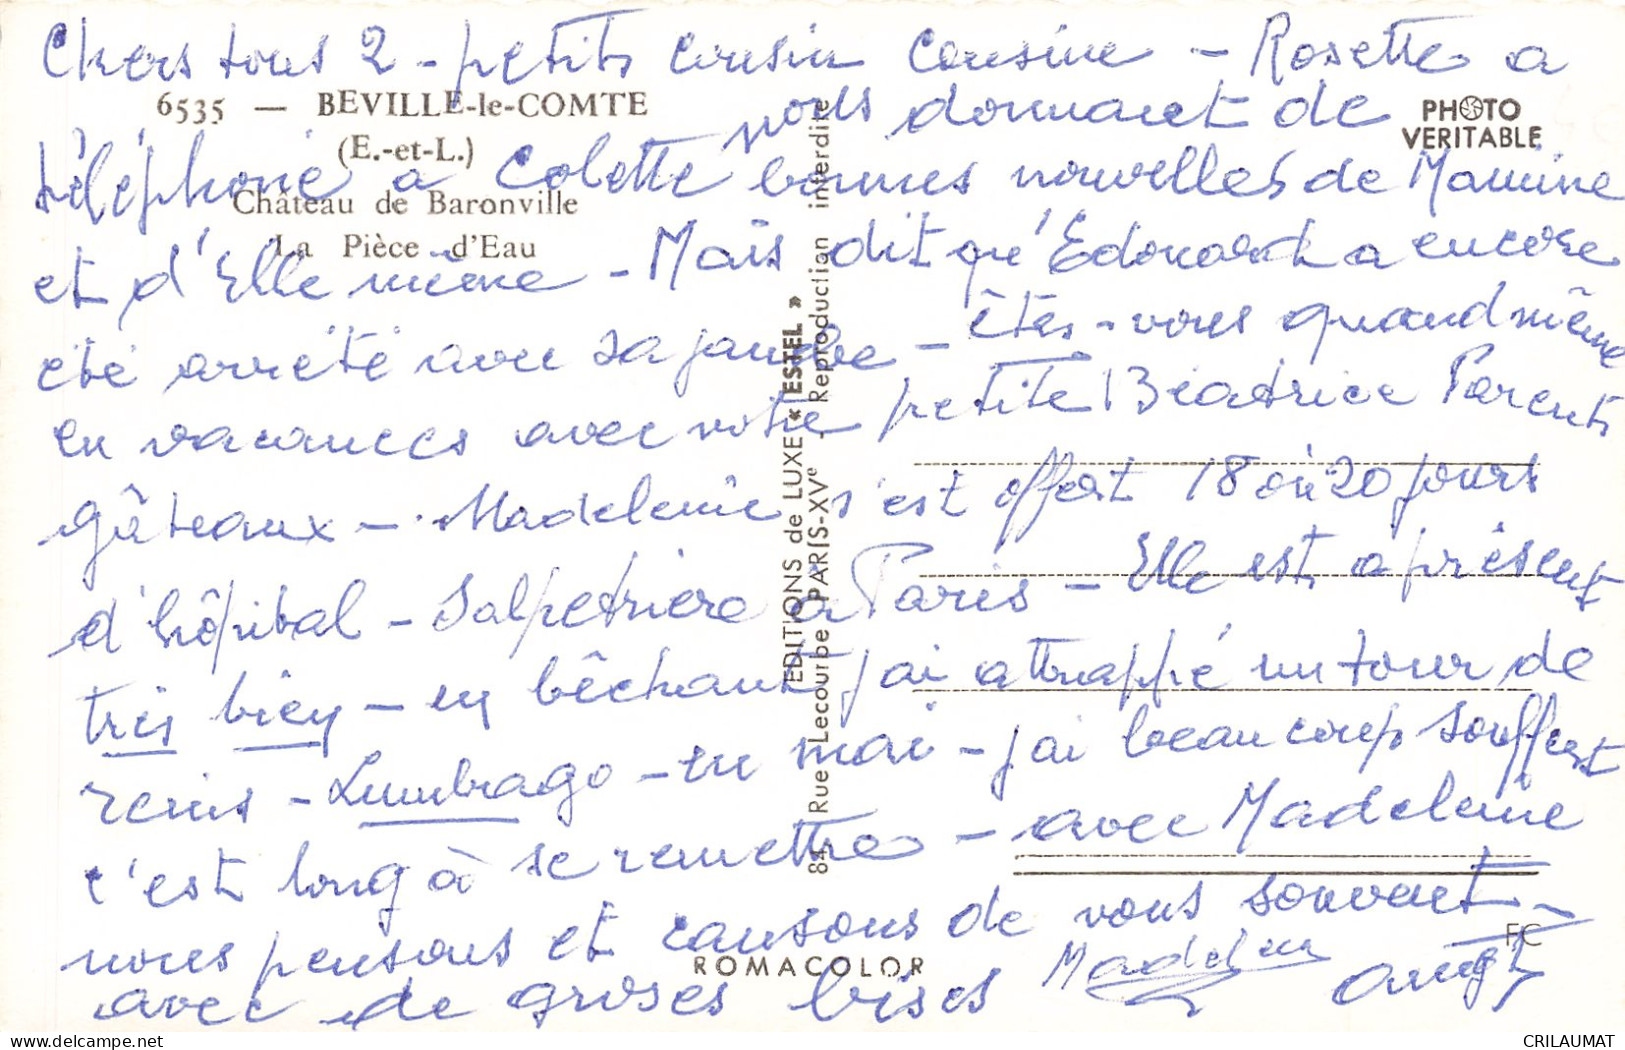 Chers tous 2 - petits cousin cousine - Rosette a
6535 — BEVILLE-le-COMTE
(E.-et-L.)
Château de Baronville
La Pièce d'Eau
PHOTO
VERITABLE
téléphoné a Colette nous donnant de bonnes nouvelles de Mamine
et d'Elle même - Mais dit qu'Edouard a encore
été arrêté avec sa jambe - êtes-vous quand même
en vacances avec votre petite Béatrice Parents
gâteaux - Madeleine s'est offert 18 où 20 jours
d'hôpital - Salpetrière à Paris - Elle est a présent
très bien - en bêchant j'ai attrappé un tour de
reins - Lumbago - en mai - j'ai beaucoup souffert
c'est long à se remettre - avec Madeleine
nous pensons et causons de vous souvent -
avec de groses bises Madeleine
EDITIONS de LUXE « ESTEL »
84, Rue Lecourbe PARIS-XVe - Reproduction interdite
ROMACOLOR
EC
CRILAUMAT